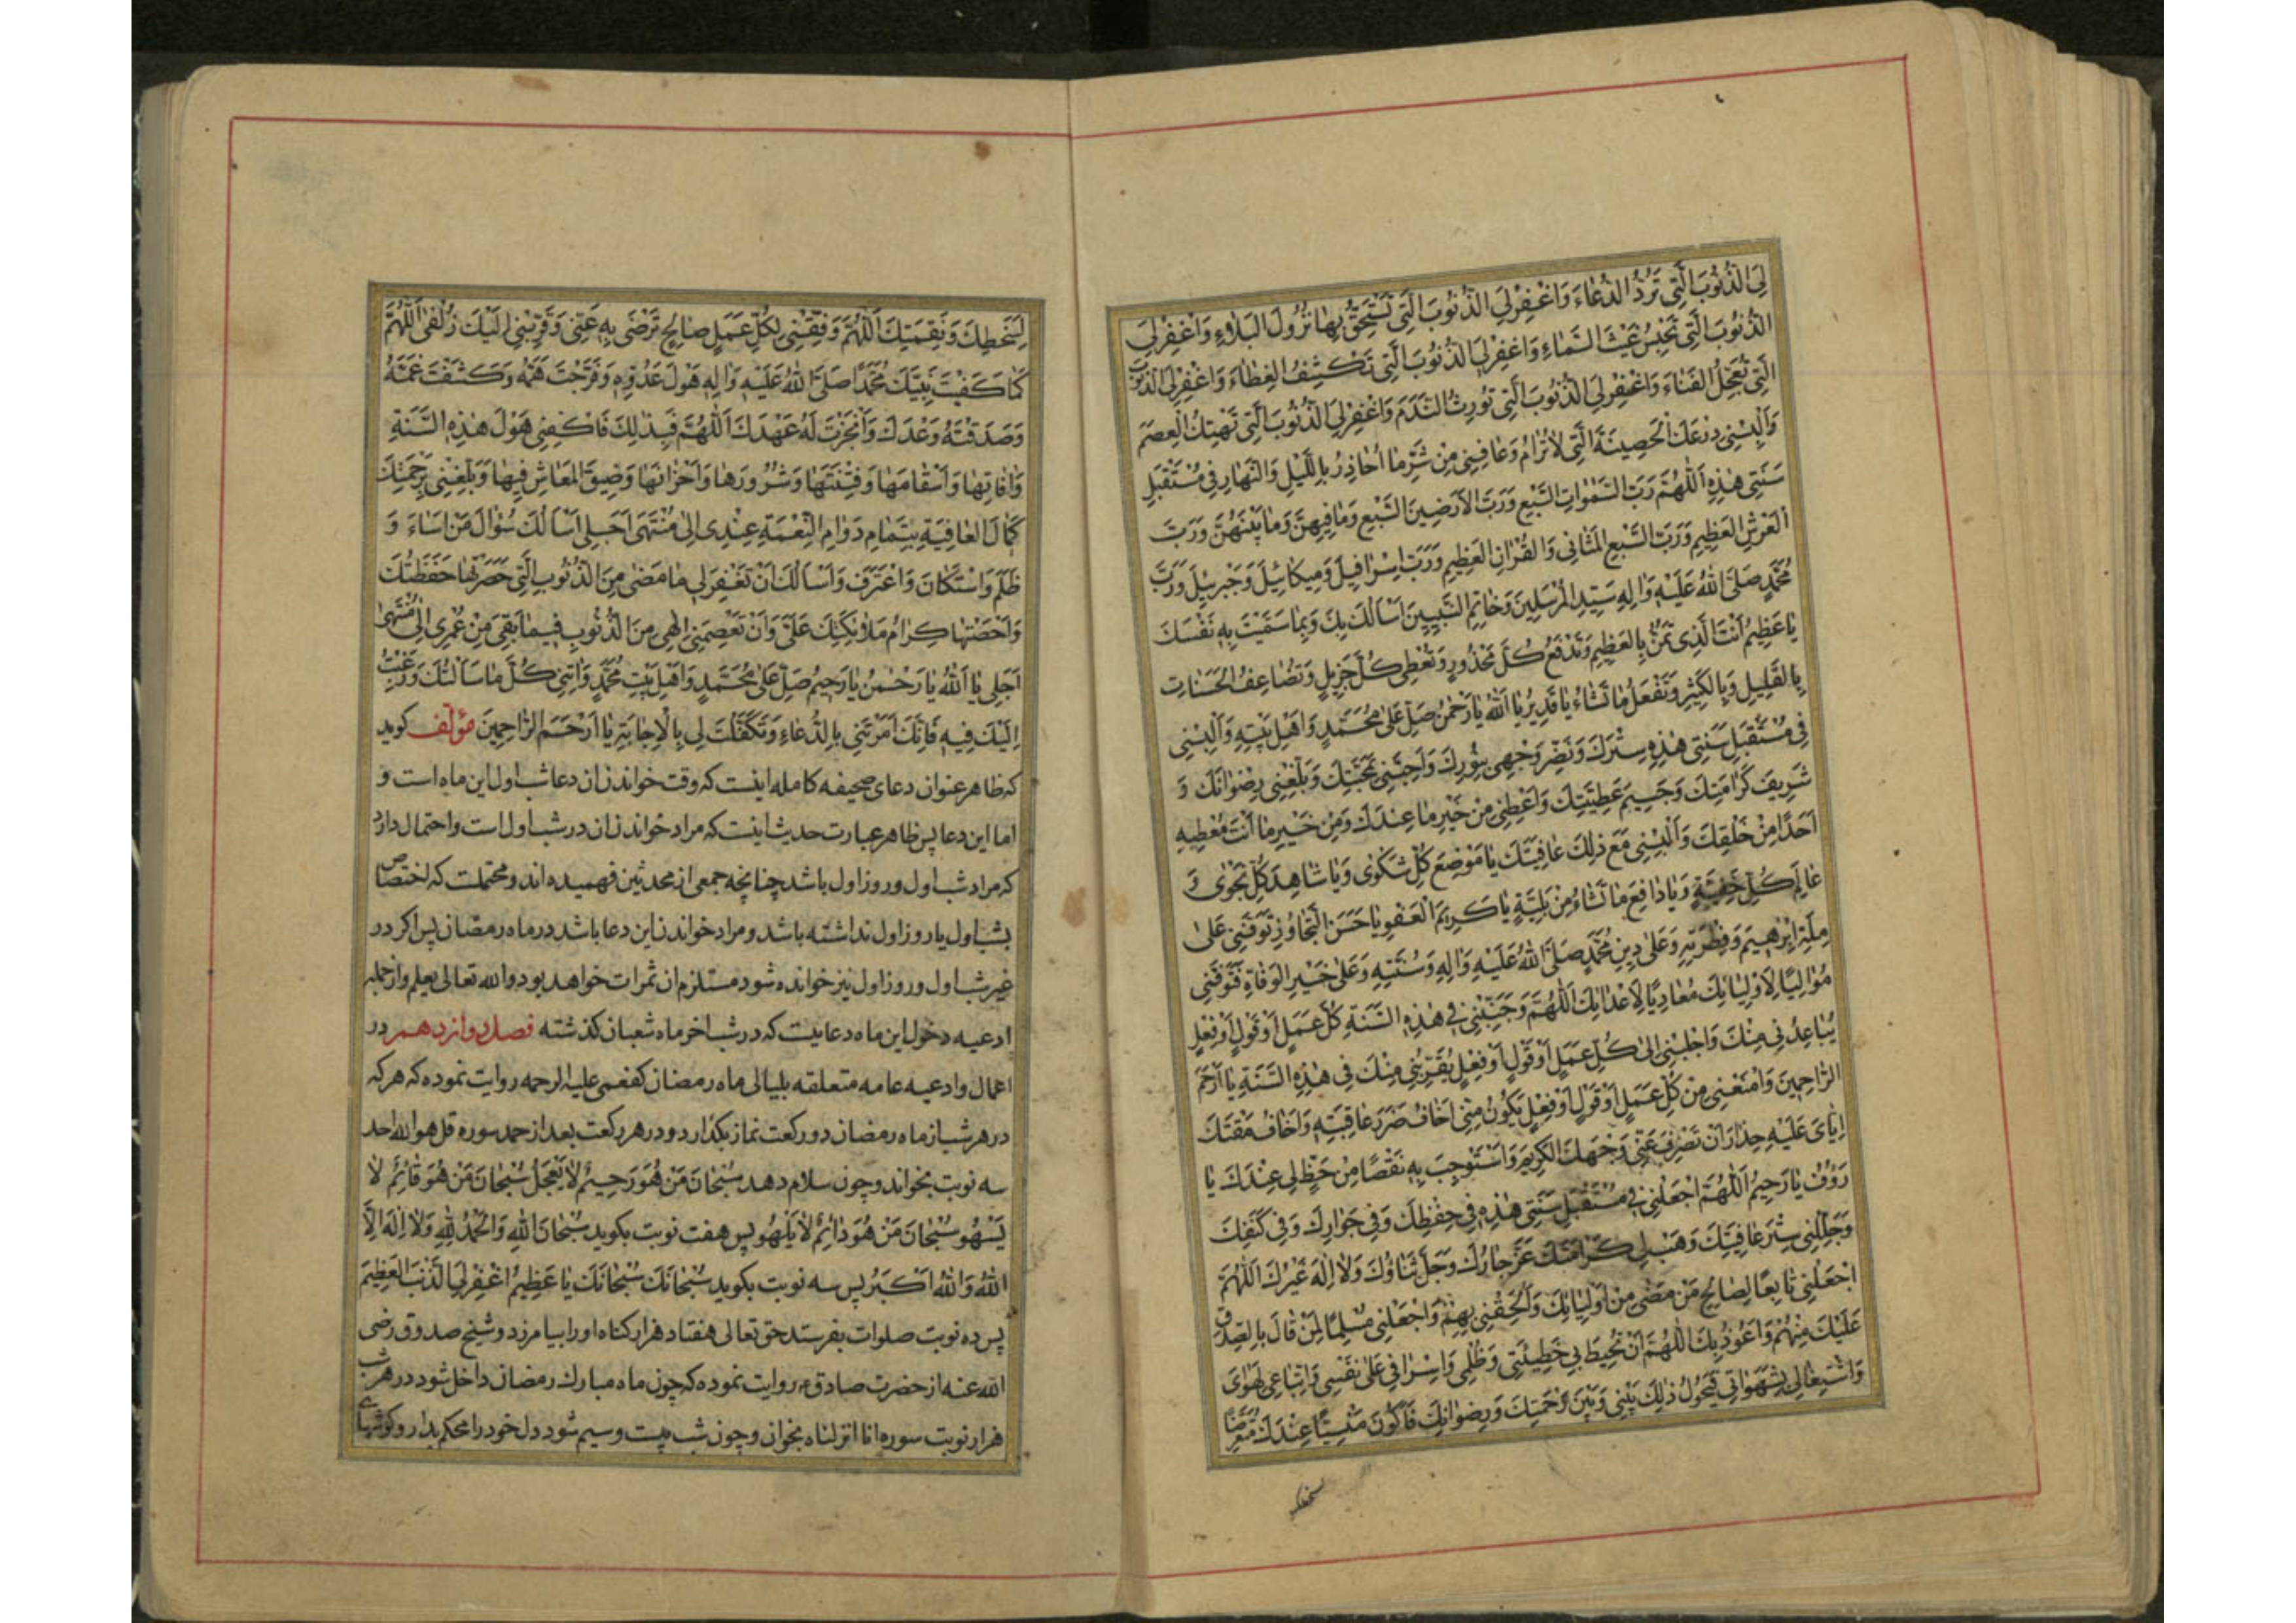 لِيَ الذُّنُوبَ الَّتِي تَرُدُّ الدُّعَاءَ وَاغْفِرْ لِيَ الذُّنُوبَ الَّتِي تُسْتَحَقُّ بِهَا نُزُولَ الْبَلَاءِ وَاغْفِرْ لِيَ
الذُّنُوبَ الَّتِي تَحْبِسُ غَيْثَ السَّمَاءِ وَاغْفِرْ لِيَ الذُّنُوبَ الَّتِي تَكْشِفُ الْغِطَاءَ وَاغْفِرْ لِيَ الذُّنُوبَ
الَّتِي تُعَجِّلُ الْفَنَاءَ وَاغْفِرْ لِيَ الذُّنُوبَ الَّتِي تُورِثُ النَّدَمَ وَاغْفِرْ لِيَ الذُّنُوبَ الَّتِي تَهْتِكُ الْعِصَمَ
وَأَلْبِسْنِي دِرْعَكَ الْحَصِينَةَ الَّتِي لَا تُرَامُ وَعَافِنِي مِنْ شَرِّ مَا أُحَاذِرُ بِاللَّيْلِ وَالنَّهَارِ فِي مُسْتَقْبَلِ
سَنَتِي هٰذِهِ اللّٰهُمَّ رَبَّ السَّمٰوَاتِ السَّبْعِ وَرَبَّ الْأَرَضِينَ السَّبْعِ وَمَا فِيهِنَّ وَمَا بَيْنَهُنَّ وَرَبَّ
الْعَرْشِ الْعَظِيمِ وَرَبَّ السَّبْعِ الْمَثَانِي وَالْقُرْآنِ الْعَظِيمِ وَرَبَّ إِسْرَافِيلَ وَمِيكَائِيلَ وَجَبْرَئِيلَ وَرَبَّ
مُحَمَّدٍ صَلَّى اللّٰهُ عَلَيْهِ وَآلِهِ سَيِّدِ الْمُرْسَلِينَ وَخَاتِمِ النَّبِيِّينَ أَسْأَلُكَ بِكَ وَبِمَا سَمَّيْتَ بِهِ نَفْسَكَ
يَا عَظِيمُ أَنْتَ الَّذِي تَمُنُّ بِالْعَظِيمِ وَتَدْفَعُ كُلَّ مَحْذُورٍ وَتُعْطِي كُلَّ جَزِيلٍ وَتُضَاعِفُ الْحَسَنَاتِ
بِالْقَلِيلِ وَبِالْكَثِيرِ وَتَفْعَلُ مَا تَشَاءُ يَا قَدِيرُ يَا اللّٰهُ يَا رَحْمٰنُ صَلِّ عَلَى مُحَمَّدٍ وَأَهْلِ بَيْتِهِ وَأَلْبِسْنِي
فِي مُسْتَقْبَلِ سَنَتِي هٰذِهِ سِتْرَكَ وَنَضِّرْ وَجْهِي بِنُورِكَ وَأَحِبَّنِي بِمَحَبَّتِكَ وَبَلِّغْنِي رِضْوَانَكَ وَ
شَرِيفَ كَرَامَتِكَ وَجَسِيمَ عَطِيَّتِكَ وَأَعْطِنِي مِنْ خَيْرِ مَا عِنْدَكَ وَمِنْ خَيْرِ مَا أَنْتَ مُعْطِيهِ
أَحَدًا مِنْ خَلْقِكَ وَأَلْبِسْنِي مَعَ ذٰلِكَ عَافِيَتَكَ يَا مَوْضِعَ كُلِّ شَكْوَى وَيَا شَاهِدَ كُلِّ نَجْوَى وَ
عَالِمَ كُلِّ خَفِيَّةٍ وَيَا دَافِعَ مَا تَشَاءُ مِنْ بَلِيَّةٍ يَا كَرِيمَ الْعَفْوِ يَا حَسَنَ التَّجَاوُزِ تَوَفَّنِي عَلَى
مِلَّةِ إِبْرٰهِيمَ وَفِطْرَتِهِ وَعَلَى دِينِ مُحَمَّدٍ صَلَّى اللّٰهُ عَلَيْهِ وَآلِهِ وَسُنَّتِهِ وَعَلَى خَيْرِ الْوَفَاةِ فَتَوَفَّنِي
مُوَالِيًا لِأَوْلِيَائِكَ مُعَادِيًا لِأَعْدَائِكَ اللّٰهُمَّ وَجَنِّبْنِي فِي هٰذِهِ السَّنَةِ كُلَّ عَمَلٍ أَوْ قَوْلٍ أَوْ فِعْلٍ
يُبَاعِدُنِي مِنْكَ وَاجْلِبْنِي إِلَى كُلِّ عَمَلٍ أَوْ قَوْلٍ أَوْ فِعْلٍ يُقَرِّبُنِي مِنْكَ فِي هٰذِهِ السَّنَةِ يَا أَرْحَمَ
الرَّاحِمِينَ وَامْنَعْنِي مِنْ كُلِّ عَمَلٍ أَوْ قَوْلٍ أَوْ فِعْلٍ يَكُونُ مِنِّي أَخَافُ ضَرَرَ عَاقِبَتِهِ وَأَخَافُ مَقْتَكَ
إِيَّايَ عَلَيْهِ حِذَارَ أَنْ تَصْرِفَ عَنِّي وَجْهَكَ الْكَرِيمَ وَأَسْتَوْجِبَ بِهِ نَقْصًا مِنْ حَظٍّ لِي عِنْدَكَ يَا
رَؤُوفُ يَا رَحِيمُ اللّٰهُمَّ اجْعَلْنِي فِي مُسْتَقْبَلِ سَنَتِي هٰذِهِ فِي حِفْظِكَ وَفِي جِوَارِكَ وَفِي كَنَفِكَ
وَجَلِّلْنِي سِتْرَ عَافِيَتِكَ وَهَبْ لِي كَرَامَتَكَ عَزَّ جَارُكَ وَجَلَّ ثَنَاؤُكَ وَلَا إِلٰهَ غَيْرُكَ اللّٰهُمَّ
اجْعَلْنِي تَابِعًا لِصَالِحِ مَنْ مَضَى مِنْ أَوْلِيَائِكَ وَأَلْحِقْنِي بِهِمْ وَاجْعَلْنِي مُسْلِمًا لِمَنْ قَالَ بِالصِّدْقِ
عَلَيْكَ مِنْهُمْ وَأَعُوذُ بِكَ اللّٰهُمَّ أَنْ تُحِيطَ بِي خَطِيئَتِي وَظُلْمِي وَإِسْرَافِي عَلَى نَفْسِي وَاتِّبَاعِي لِهَوَايَ
وَاشْتِغَالِي بِشَهَوَاتِي فَيَحُولُ ذٰلِكَ بَيْنِي وَبَيْنَ رَحْمَتِكَ وَرِضْوَانِكَ فَأَكُونَ مَنْسِيًّا عِنْدَكَ مُتَعَرِّضًا
لسخطك
لِسَخَطِكَ وَنَقِمَتِكَ اللّٰهُمَّ وَفِّقْنِي لِكُلِّ عَمَلٍ صَالِحٍ تَرْضَى بِهِ عَنِّي وَقَرِّبْنِي إِلَيْكَ زُلْفَى اللّٰهُمَّ
كَمَا كَفَيْتَ نَبِيَّكَ مُحَمَّدًا صَلَّى اللّٰهُ عَلَيْهِ وَآلِهِ هَوْلَ عَدُوِّهِ وَفَرَّجْتَ هَمَّهُ وَكَشَفْتَ غَمَّهُ
وَصَدَقْتَهُ وَعْدَكَ وَأَنْجَزْتَ لَهُ عَهْدَكَ اللّٰهُمَّ فَبِذٰلِكَ فَاكْفِنِي هَوْلَ هٰذِهِ السَّنَةِ
وَآفَاتِهَا وَأَسْقَامَهَا وَفِتْنَتَهَا وَشُرُورَهَا وَأَحْزَانَهَا وَضِيقَ الْمَعَاشِ فِيهَا وَبَلِّغْنِي بِرَحْمَتِكَ
كَمَالَ الْعَافِيَةِ بِتَمَامِ دَوَامِ النِّعْمَةِ عِنْدِي إِلَى مُنْتَهَى أَجَلِي أَسْأَلُكَ سُؤَالَ مَنْ أَسَاءَ وَ
ظَلَمَ وَاسْتَكَانَ وَاعْتَرَفَ وَأَسْأَلُكَ أَنْ تَغْفِرَ لِي مَا مَضَى مِنَ الذُّنُوبِ الَّتِي حَصَرَتْهَا حَفَظَتُكَ
وَأَحْصَتْهَا كِرَامُ مَلَائِكَتِكَ عَلَيَّ وَأَنْ تَعْصِمَنِي إِلٰهِي مِنَ الذُّنُوبِ فِيمَا بَقِيَ مِنْ عُمْرِي إِلَى مُنْتَهَى
أَجَلِي يَا اللّٰهُ يَا رَحْمٰنُ يَا رَحِيمُ صَلِّ عَلَى مُحَمَّدٍ وَأَهْلِ بَيْتِ مُحَمَّدٍ وَآتِنِي كُلَّ مَا سَأَلْتُكَ وَرَغِبْتُ
إِلَيْكَ فِيهِ فَإِنَّكَ أَمَرْتَنِي بِالدُّعَاءِ وَتَكَفَّلْتَ لِي بِالْإِجَابَةِ يَا أَرْحَمَ الرَّاحِمِينَ مؤلف كويد
كه ظاهر عنوان دعاى صحيفه كامله اينست كه وقت خواندن ان دعا شب اول اين ماه است و
اما اين دعا پس ظاهر عبارت حديث اينست كه مراد خواندن ان در شب اول است و احتمال دارد
كه مراد شب اول و روز اول باشد چنانچه جمعى از محدثين فهميده اند و محتملست كه اختصاص
بشب اول يا روز اول نداشته باشد و مراد خواندن اين دعا باشد در ماه رمضان پس اكر در
غير شب اول و روز اول نيز خوانده شود مستلزم ان ثمرات خواهد بود والله تعالى يعلم و از جمله
ادعيه دخول اين ماه دعاييست كه در شب اخر ماه شعبان كذشته فصل دوازدهم در
اعمال و ادعيه عامه متعلقه بليالى ماه رمضان كفعمى عليه الرحمه روايت نموده كه هر كه
در هر شب از ماه رمضان دو ركعت نماز بكذارد و در هر ركعت بعد از حمد سوره قل هو الله احد
سه نوبت بخواند و چون سلام دهد سُبْحَانَ مَنْ هُوَ رَحِيمٌ لَا يَعْجَلُ سُبْحَانَ مَنْ هُوَ قَائِمٌ لَا
يَسْهُو سُبْحَانَ مَنْ هُوَ دَائِمٌ لَا يَلْهُو پس هفت نوبت بكويد سُبْحَانَ اللّٰهِ وَالْحَمْدُ لِلّٰهِ وَلَا إِلٰهَ إِلَّا
اللّٰهُ وَاللّٰهُ أَكْبَرُ پس سه نوبت بكويد سُبْحَانَكَ سُبْحَانَكَ يَا عَظِيمُ اغْفِرْ لِيَ الذَّنْبَ الْعَظِيمَ
پس ده نوبت صلوات بفرستد حق تعالى هفتاد هزار كناه او را بيامرزد و شيخ صدوق رضى
الله عنه از حضرت صادق ع روايت نموده كه چون ماه مبارك رمضان داخل شود در هر شب
هزار نوبت سوره انا انزلناه بخوان و چون شب بيست و سيم شود دل خود را محكم بدار و كوشهاى